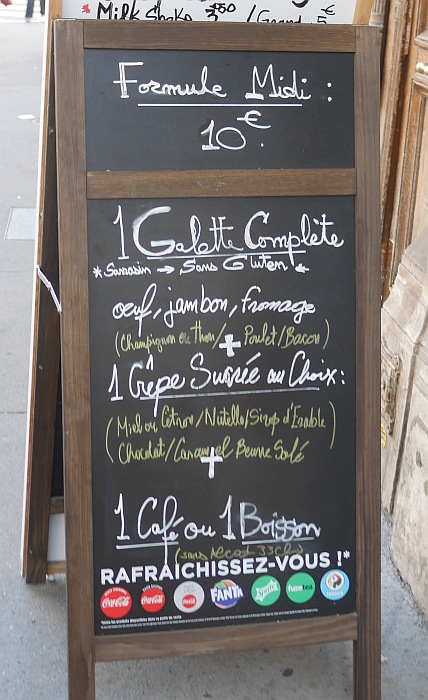 * Milk Shake 3€50 / Grand 5€
Formule Midi :
10€.
1 Galette Complète
* Sarrasin → Sans Gluten ←
œuf, jambon, fromage
(Champignon ou Thon / Poulet / Bacon)
+
1 Crêpe Sucrée au Choix :
(Miel ou Citron / Nutella / Sirop d'Erable
Chocolat / Caramel Beurre Salé)
+
1 Café ou 1 Boisson
(sans Alcool 33cl)
RAFRAICHISSEZ-VOUS !*
Coca-Cola Coca-Cola Coca-Cola FANTA Sprite fuzetea